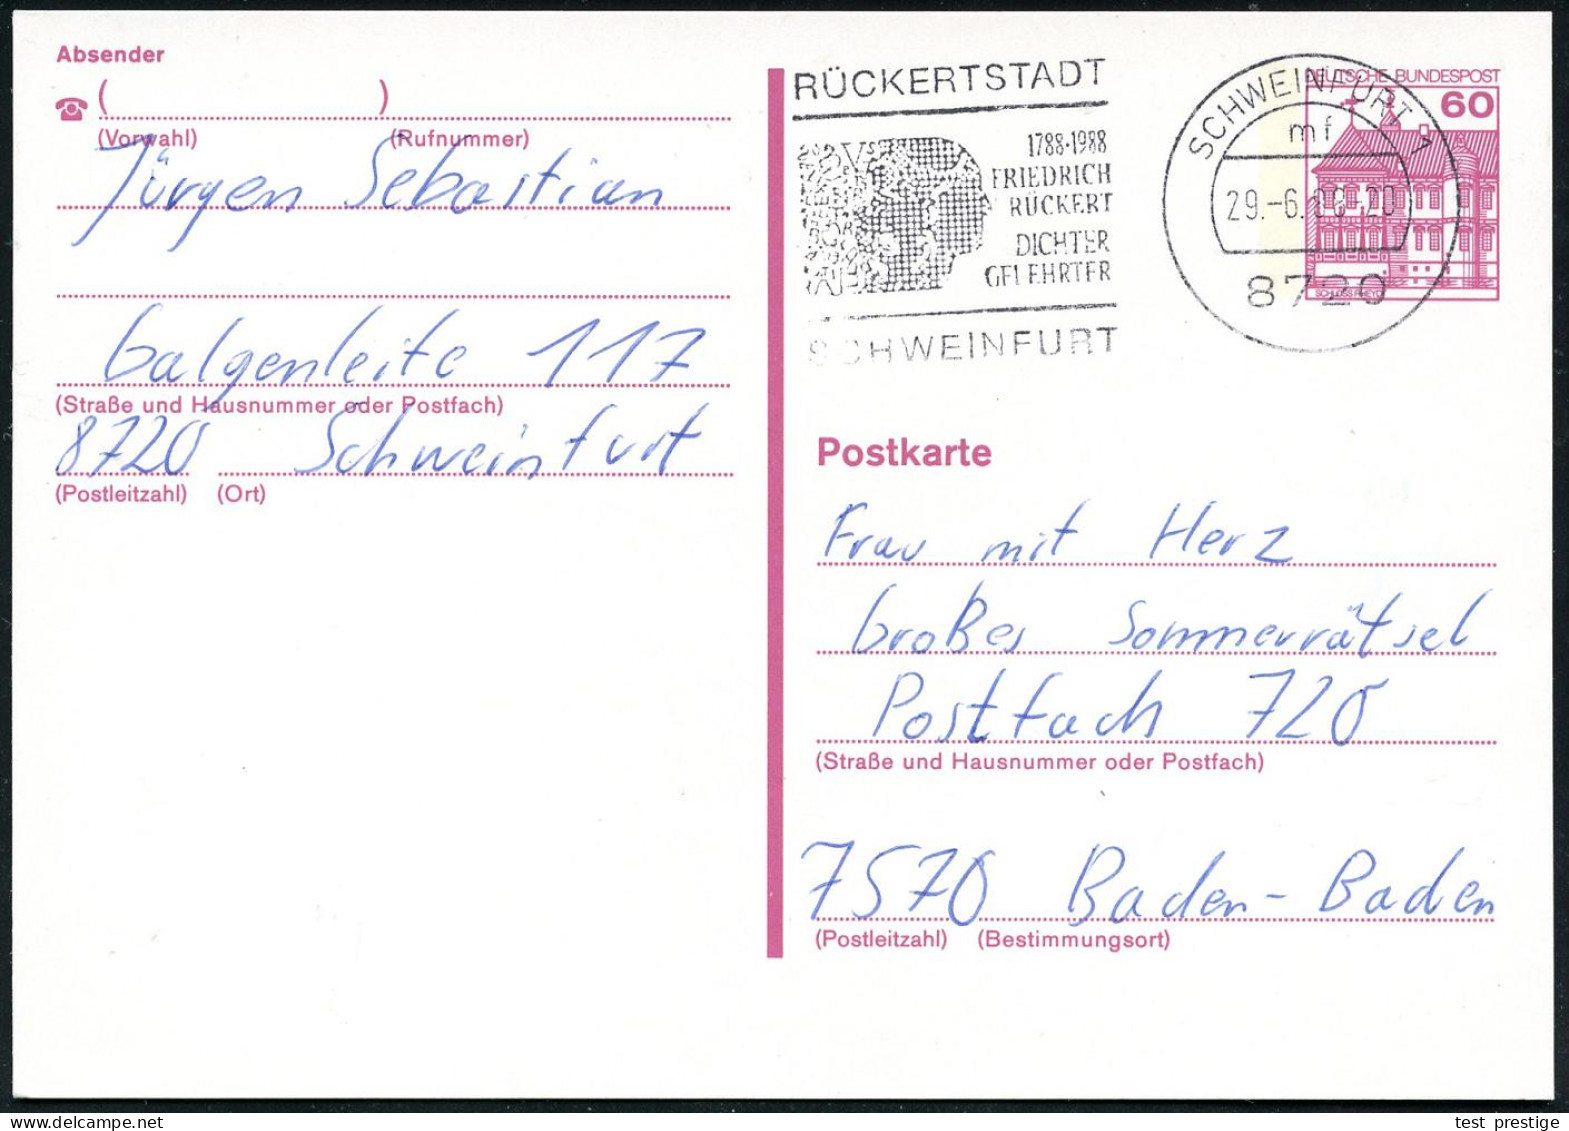 Absender
( )
(Vorwahl) (Rufnummer)
Jürgen Sebastian
Galgenleite 117
(Straße und Hausnummer oder Postfach)
8720 Schweinfurt
(Postleitzahl) (Ort)
RÜCKERTSTADT
1788-1988
FRIEDRICH
RÜCKERT
DICHTER
GELEHRTER
SCHWEINFURT
SCHWEINFURT 1
mf
29.-6.88-20
8720
DEUTSCHE BUNDESPOST
60
SCHLOSS RHEYDT
Postkarte
Frau mit Herz
Großes Sommerrätsel
Postfach 720
(Straße und Hausnummer oder Postfach)
7570 Baden-Baden
(Postleitzahl) (Bestimmungsort)
test_prestige